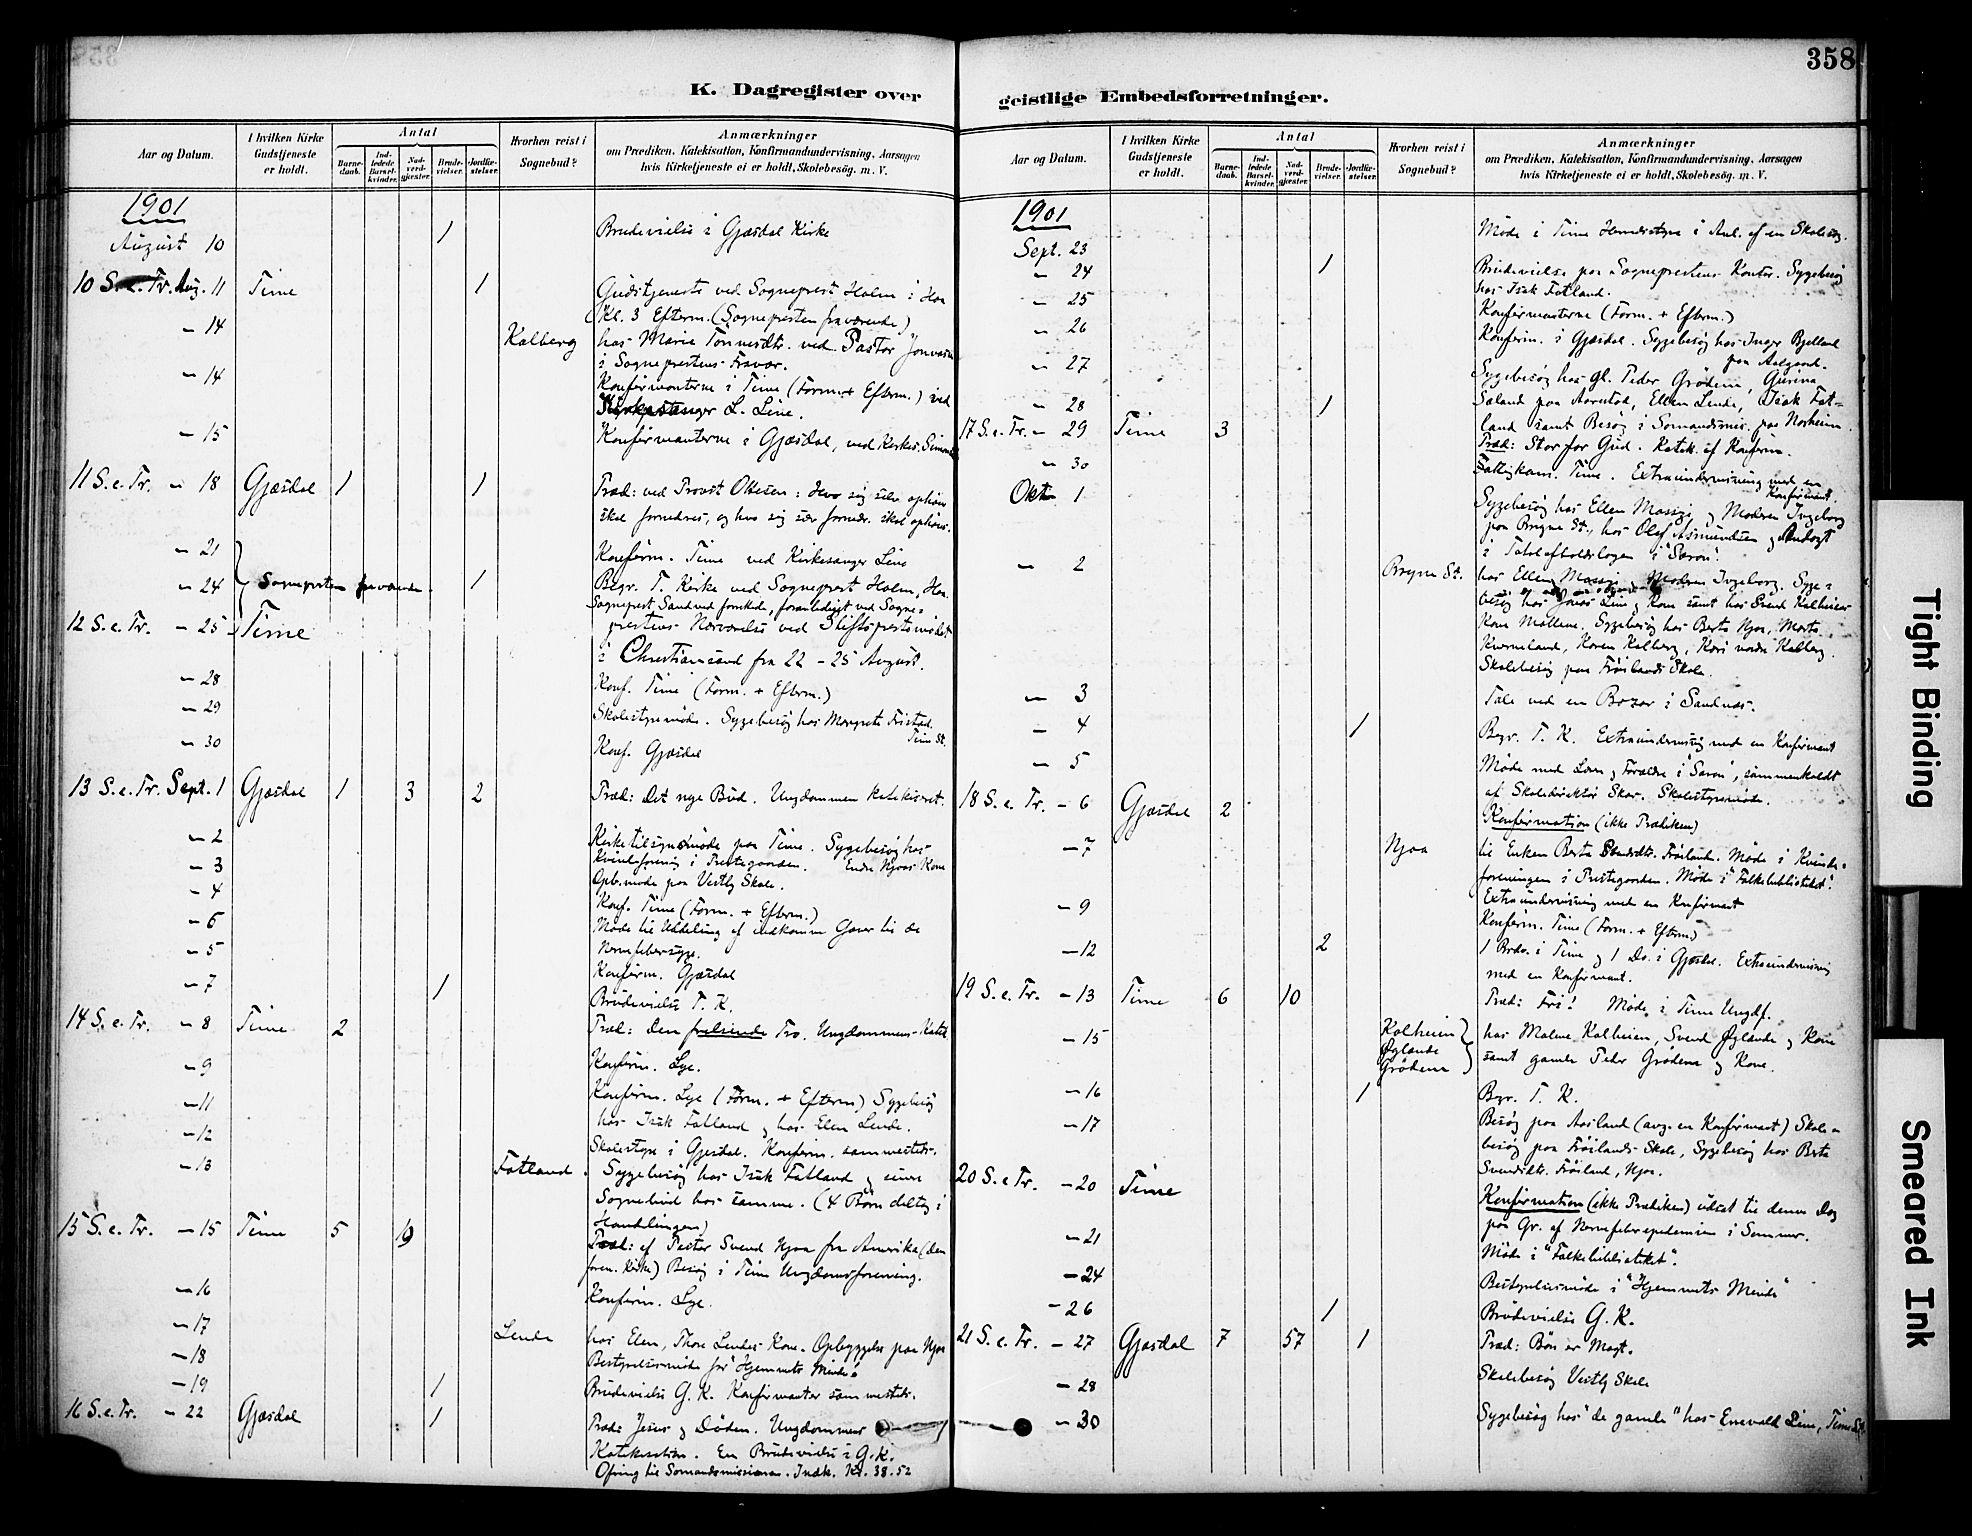 358
K. Dagregister over
Aar og Datum.
I hvilken Kirke Gudstjeneste er holdt.
Antal
Barnedaab.
Indledede Barselkvinder.
Nadverdgjester.
Brudevielser.
Jordfæstelser.
Hvorhen reist i Sognebud?
Anmærkninger
om Prædiken, Katekisation, Konfirmandundervisning, Aarsagen
hvis Kirketjeneste ei er holdt, Skolebesøg. m. V.
1901
August 10 1 Brudevielse i Gjæsdal Kirke
10 S. e. Tr. Aug. 11 Time 1 Gudstjeneste ved Sogneprest Holm i Haa
Kl. 3 Efterm. (Sognepresten fraværende)
– 14 Kalberg hos Marie Tønnesdtr. ved Pastor
i Sogneprestens Fravær.
– 14 Konfirmanterne i Time (Form. + Efterm.) ved
Kirkesanger L. Line.
– 15 Konfirmanterne i Gjæsdal, ved Kirkes.
11 S. e. Tr. – 18 Gjæsdal 1 1 Præd: ved Provst Ottesen: Hvo sig selv ophøier
skal fornedres, og hvo sig selv fornedr. skal ophøies.
– 21 Konfirm. Time ved Kirkesanger Line
– 24 Sognepresten fraværende 1 Begr. T. Kirke ved Sogneprest Holm, Haa.
Sogneprest Sandved foranlediget ved Sogne-
12 S. e. Tr. – 25 Time prestens Nærværelse ved Stiftsprestemødet
i Christianssand fra 22 – 25 August.
– 28 Konf. Time (Form. + Efterm.)
– 29 Skolestyremøde. Sygebesøg hos Margrete Fristad.
Time St.
– 30 Konf. Gjæsdal
13 S. e. Tr. Sept. 1 Gjæsdal 1 3 2 Præd: Det nye Bud. Ungdommen katekiseret.
– 2 Kirketilsynsmøde paa Time. Sygebesøg hos
– 3 Kvindeforening i Prestegaarden. Endre Njaas Kone
– 4 Opb.møde paa Vestly Skole.
– 6 Konf. Time (Form. + Efterm.)
Møde til Uddeling af indkomne Gaver til de
– 5 Nervefebersyge.
Konfirm. Gjæsdal
– 7 1 Brudevielse T. K.
14 S. e. Tr. – 8 Time 2 Præd: Den frelsende Tro. Ungdommens Katek.
– 9 Konfirm. Lye.
– 11 Konfirm. Lye (Form. + Efterm) Sygebesøg
– 12 hos Isak Fatland og hos Elen Lende.
Skolestyre i Gjesdal. Konfirm. sammesteds.
– 13 Fatland. Sygebesøg hos Isak Fatland og senere
Sognebud hos samme. (4 Børn deltog i
Handlingen)
15 S. e. Tr. – 15 Time 5 19 Præd: af Pastor Svend Njaa fra Amerika (den
foren. Kirke) Besøg i Time Ungdomsforening.
– 16 Konfirm. Lye.
– 17 Lende hos Elen, Thore Lendes Kone. Opbyggelse paa Njaa
– 18 Bestyrelsesmøde for "Hjemmets Minde".
– 19 1 Brudevielse G. K. Konfirmanter sammesteds.
16 S. e. Tr. – 22 Gjæsdal 1 Præd: Jesus og Døden. Ungdommens
Katekisation. En Brudevielse i G. K.
Ofring til Sømandsmissionen. Indk. Kr. 38.52
geistlige Embedsforretninger.
Aar og Datum.
I hvilken Kirke Gudstjeneste er holdt.
Antal
Barnedaab.
Indledede Barselkvinder.
Nadverdgjester.
Brudevielser.
Jordfæstelser.
Hvorhen reist i Sognebud?
Anmærkninger
om Prædiken, Katekisation, Konfirmandundervisning, Aarsagen
hvis Kirketjeneste ei er holdt, Skolebesøg. m. V.
1901
Sept. 23 Møde i Time Herredsstyre i Anl. af en Skolesag.
– 24 1 Brudevielse paa Sogneprestens Kontor. Sygebesøg
hos Isak Fatland.
– 25 Konfirmanterne (Form. + Efterm.)
– 26 Konfirm. i Gjæsdal. Sygebesøg hos Inger Bjelland
paa Aalgaard.
– 27 Sygebesøg hos gl. Peder Grødem, Gurina
– 28 1 Søland paa Aarestad, Ellen Lende, Isak Fat-
land samt Besøg i Sømandsmis. paa Norheim.
17 S. e. Tr. – 29 Time 3 Præd: Stor for Gud. Katek. af Konfirm.
– 30 Fattigkom. Time. Extraundervisning med en
Konfirmant.
Oktr. 1 Sygebesøg hos Ellen Massigi og Moderen Ingeborg
paa Bryne St., hos Olaf Asmundsen og Andagt
i Totalafholdslogen i "Saron".
– 2 Bryne St. hos Ellen Massigi og Moderen Ingeborg. Syge-
besøg hos Jonas Line og Kone samt hos Svend Kalheier
Kone Mallene. Sygebesøg hos Berta Njaa, Marta
Kverneland, Karen Kalberg, Kari nedre Kalberg.
Skolebesøg paa Frøilands Skole.
– 3 Tale ved en Bazar i Sandnæs.
– 4 1 Begr. T. K. Extraundervisnig med en Konfirmant
– 5 Møde med Lærer og Forældre i "Saron", sammenkaldt
af Skoledirektør Skar. Skolestyremøde.
18 S. e. Tr. – 6 Gjæsdal 2 Konfirmation (ikke Prædiken)
– 7 Njaa til Enken Berta Svendsdtr. Frøiland. Møde i Kvinde-
foreningen i Prestegaarden. Møde i "Folkebiblioteket".
– 9 Extraundervisning med en Konfirmant
Konfirm. Time (Form. + Efterm.)
– 12 2 1 Brdv. i Time og 1 Do. i Gjæsdal. Extraundervisning
med en Konfirmant.
19 S. e. Tr. – 13 Time 6 10 Præd: Fri! Møde i Time Ungdf.
– 15 Kalheien Øglænde Grødem hos Malene Kalheien, Svend Øglænde og Kone
samt gamle Peder Grødem og Kone.
– 16 1 Begr. T. K.
– 17 Besøg paa Aasland (ang. en Konfirmant) Skole-
besøg paa Frøilands Skole, Sygebesøg hos Berta
Svendsdtr. Frøiland, Njaa.
20 S. e. Tr. – 20 Time Konfirmation (ikke Prædiken) udsat til denne Dag
paa Gr. af Nervefeberepidemien i Sommer.
– 21 Møde i "Folkebiblioteket".
– 24 Bestyrelsesmøde i "Hjemmets Minde"
– 26 1 Brudevielse G. K.
21 S. e. Tr. – 27 Gjæsdal 7 57 1 Præd: Bøn er Magt.
– 28 Skolebesøg Vestly Skole
– 30 Sygebesøg hos "de gamle" hos Enevald Line, Time St.
Tight Binding
Smeared Ink